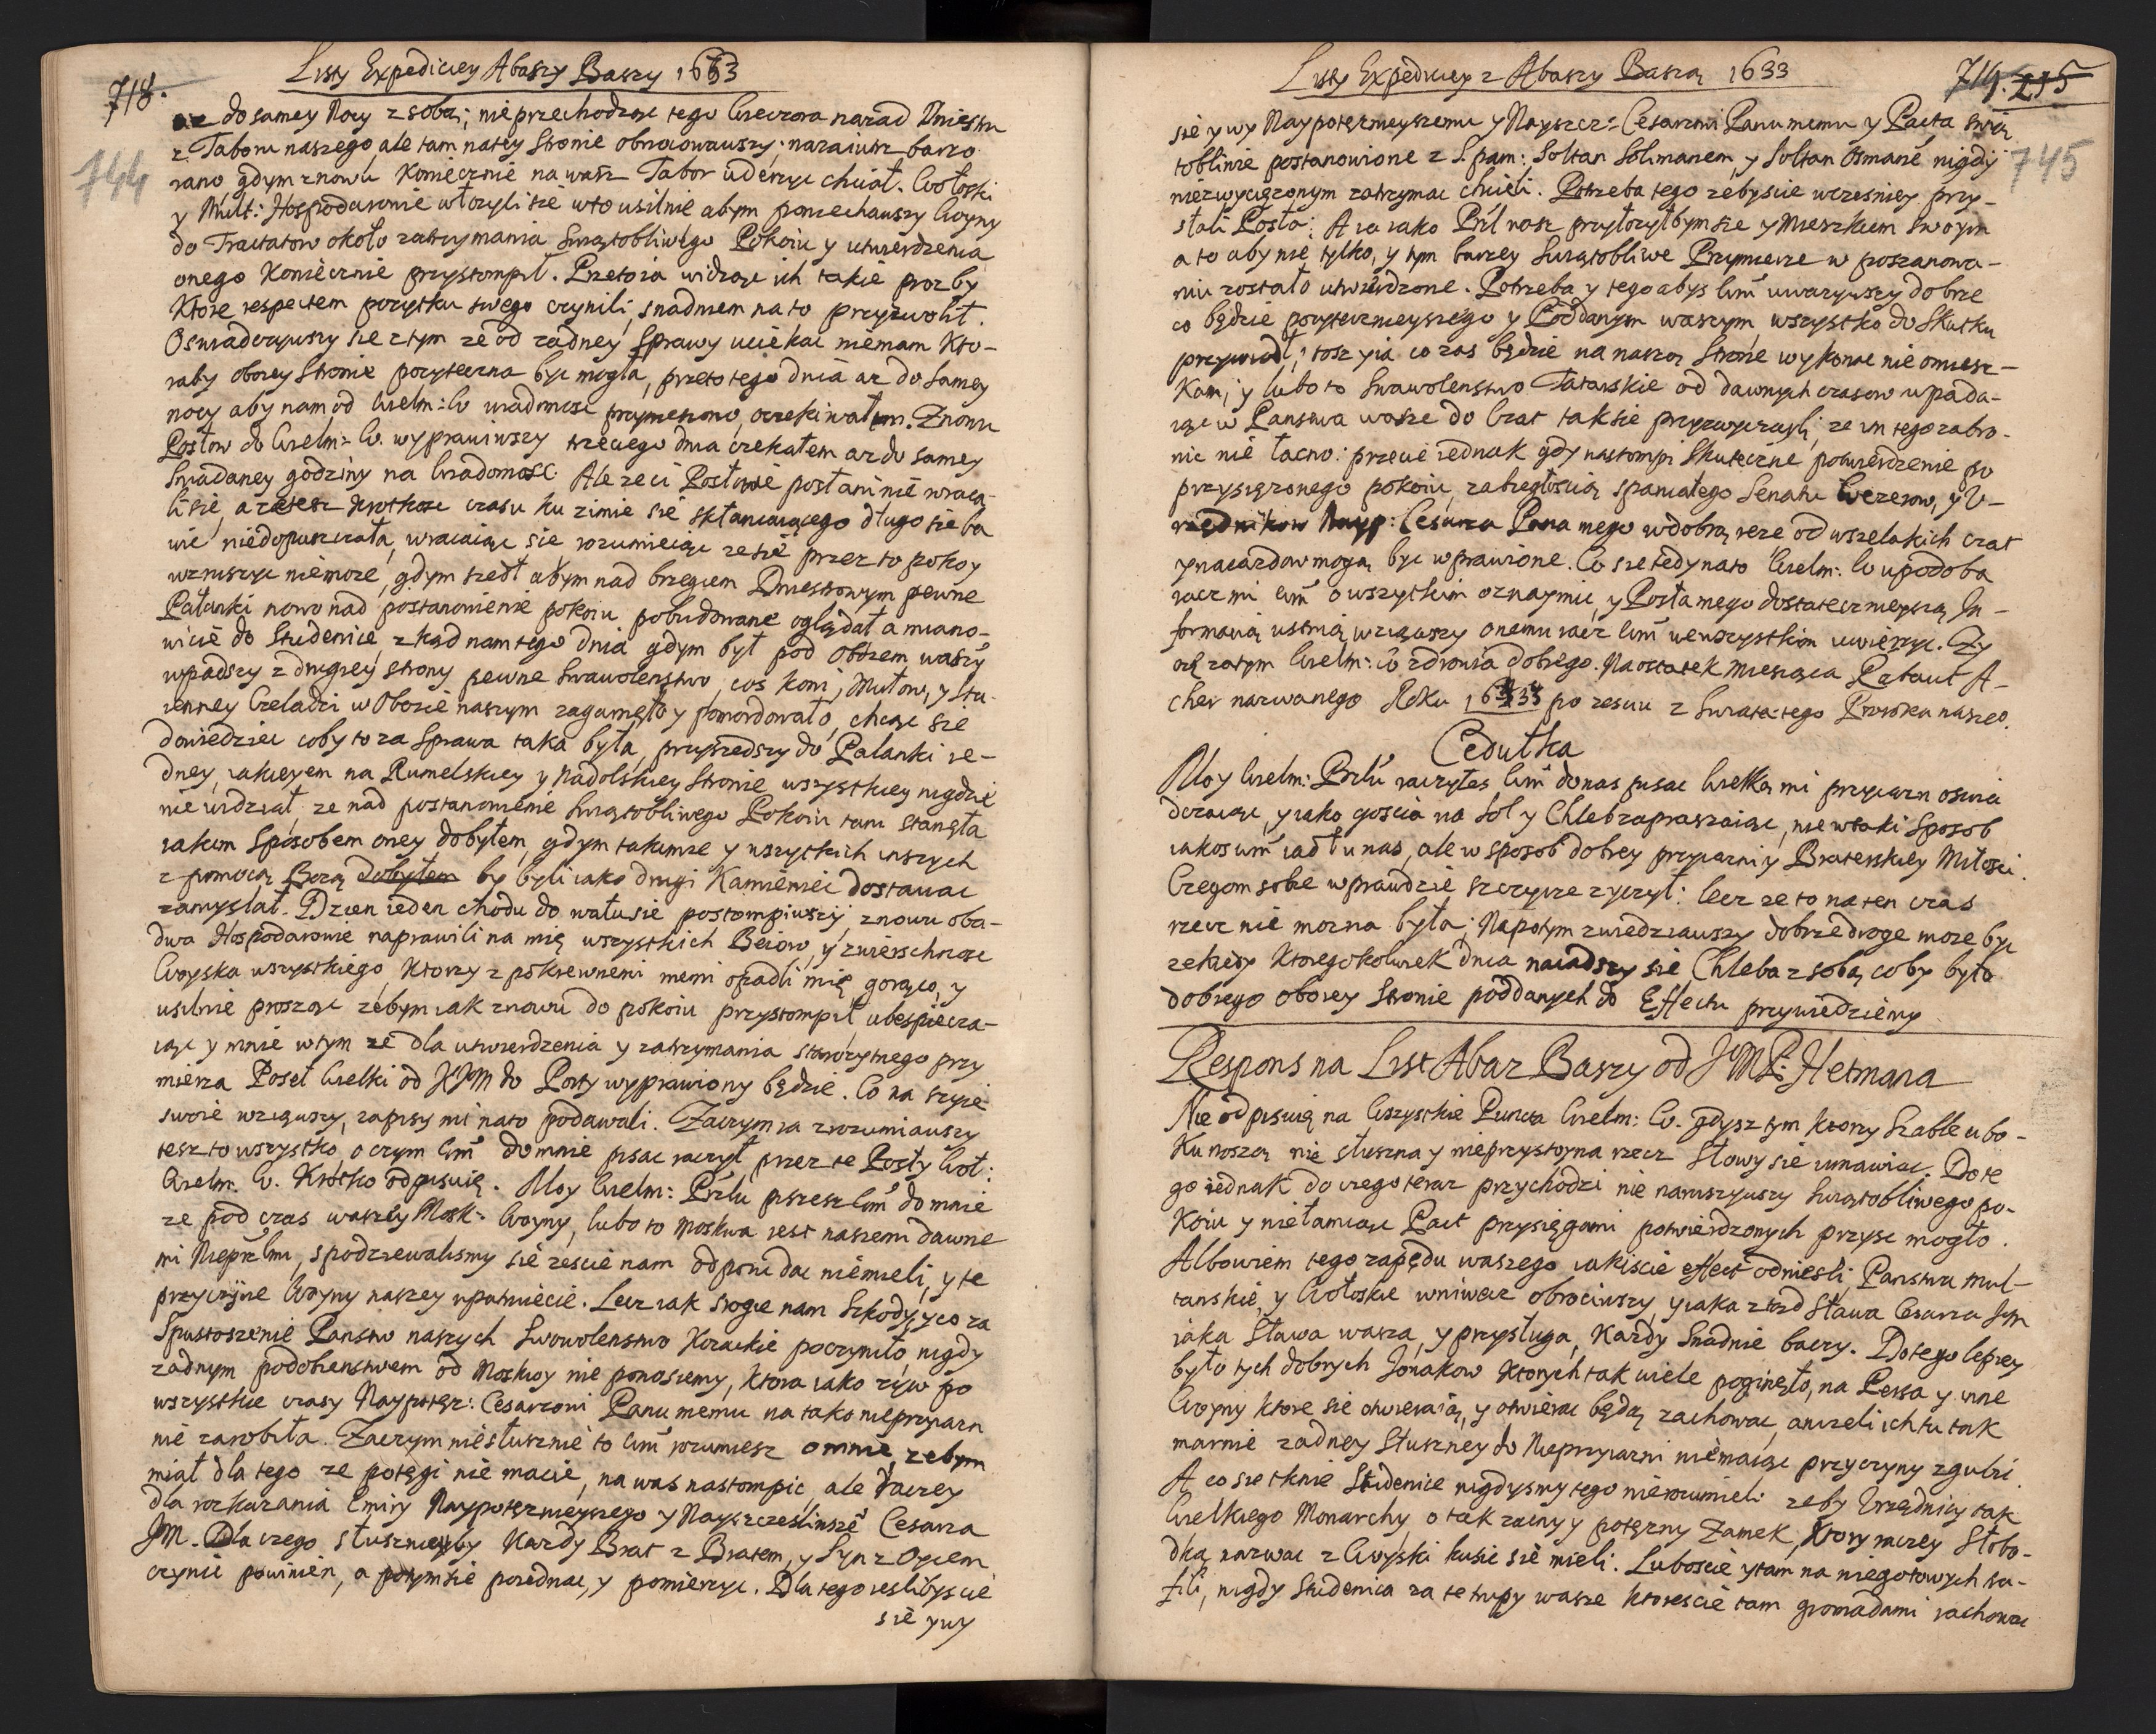 718.
Listy Expediciey Abaszy Baszy 1633
744
az do samey Nocy z sobą; nie przechodząc tego wieczora nazad Dniestru
z Taboru naszego, ale tam na tey stronie obnocowawszy; nazaiutrz barzo
rano, gdym znowu Koniecznie na wasz Tabor uderzyc chciał. Wołoski
y Mult: Hospodarowie włozyli się w to usilnie abym poniechawszy Woyny
do Tractatow około zatrzymania Swiątobliwego Pokoiu y utwierdzenia
onego Koniecznie przystompił. Przeto ia widząc ich takie prozby
Ktore respectem pozytku swego czynili, snadniem na to przyzwolił.
Oswiadczywszy się z tym ze od zadney Sprawy uciekac niemam Kto-
raby obozey Stronie pozyteczna byc mogła, przeto tego dnia az do Samey
nocy aby nam od Wielm: W wiadomosc przyniesiono, oczekiwałem. Znowu
Posłow do Wielm: W. wyprawiwszy trzeciego dnia czekałem az do samey
Sniadaney godziny na Wiadomosc. Ale ze ci Posłowie posłani nie wraca-
li się, a tesz krotkosc czasu ku zimie się skłaniaiącego długo się ba
wic niedopuszczała, wracaiąc się, rozumieiąc ze się przez to pokoy
wzruszyc niemoze, gdym szedł abym nad brzegiem Dniestrowym pewne
Palanki nowo nad postanowienie pokoiu pobudowane oglądał a miano-
wicie do Studenice, z kąd nam tego dnia gdym był pod Obozem waszy
wpadszy z drugiey strony pewne Swawolenstwo, cos koni, Mułow, y Sta-
ienney Czeladzi w Obozie naszym zagarnęło y pomordowało, chcąc się
dowiedziec coby to za Sprawa taka była, przyszedszy do Palanki ie-
dney, iakieyem na Rumelskiey y Nadolskiey Stronie wszystkiey nigdzie
nie widział, ze nad postanowienie Swiątobliwego Pokoiu tam stanęła
iakim Sposobem oney dobyłem, gdym takimze y wszytkich inszych
z pomocą Bozą dobyłem by byli iako drugi Kamieniec dostawac
zamyslał. Dzien ieden chodu do wału się postompiwszy, znowu oba-
dwa Hospodarowie naprawili na mię wszystkich Beiow, y zwierschnosc
Woyska wszystkiego, Ktorzy z pokrewnemi memi opadli mię, gorąco, y
usilnie prosząc zebym iak znowu do pokoiu przystompił ubespiecza-
iąc y mnie w tym ze dla utwierdzenia y zatrzymania starozytnego przy
mierza Poseł Wielki od KJM do Porty wyprawiony będzie. Co na szyie
swoie wziąwszy, zapisy mi na to podawali. Zaczym ia zrozumiawszy
tesz to wszystko, o czym Wm̃ do mnie pisac raczył przez te Posły Woł:
Wielm. W. Krotko odpisuię. Moy Wielm: Przlu piszesz Wm̃ do mnie
ze pod czas waszey Mosk: Woyny, lubo to Moskwa iest naszemi dawne
mi Nieprzlmi, spodziewalismy się zescie nam odpor dac niemieli, y te
przyczynę Woyny naszey upatruiecie. Lecz iak srogie nam Szkody, y co za
Spustoszenie Panstw naszych Swowolenstwo Kozackie poczyniło, nigdy
zadnym podobienstwem od Moskwy nie ponosiemy, ktora iako zyw po
wszystkie czasy Naypotęz: Cesarzowi Panu memu na tako nieprzyiazn
nie zarobiła. Zaczym niesłusznie to Wm̃ rozumiesz o mnie, zebym
miał dla tego ze potęgi nie macie, na was nastompic, ale raczey
dla rozkazania Emiry Naypotęzmieyszego y Nayszczesliwszē Cesarza
JM. Dla czego słuszniebyby Kazdy Brat z Bratem, y Syn z Oycem
czynic powinien, a potym się poiednac, y pomierzyc. Dla tego iesliby scie
się y wy
Listy Expediciey z Abaszy Baszą 1633
719. 215
745
się y wy Naypotęzmieyszemu y Nayszcz: Cesarzowi Panu memu y Pacta swią
tobliwie postanowione z S. pam: Soltan Solimanem, y Soltan Osmanē nigdy
niezwycięzonym zatrzymac chcieli. Potrzeba tego zebyscie wczesniey przy-
słali Posła: A ia iako Przl wasz przyłozyłbym się y Mieszkiem Swoym
a to aby nie tylko, y tym barzey Swiątobliwe Przymierze w poszanowa-
niu zostało utwierdzone. Potrzeba y tego abys Wm̃ uwazywszy dobrze
co będzie pozyteczneyszego y Poddanym waszym, wszystko do Skutku
przywiodł, tosz y ia co zas będzie na naszą Stronę wykonac nie omiesz-
kam, y lubo to Swawolenstwo Tatarskie od dawnych czasow wpada-
iąc w Panstwa wasze do brat tak sie przyzwyczaili, ze im tego zabro-
nic nie łacno: przecie iednak gdy nastompi Skuteczne potwierdzenie po
przysięzonego pokoiu, zabiegłoscią spaniałego Senatu Wezerow, y U-
rzędnikow Nayp: Cesarza Pana mego w dobrą rezę od wszelakich czat
y naiazdow mogą byc wprawione. Co sie tedy na to Wielm: W upodoba
racz mi Wm̃ o wszytkim oznaymic, y Posła mego dostatecznieyszą In-
formacią ustnią, wziąwszy onemu racz Wm̃ we wszystkim uwierzyc. Zy
czę zatym Wielm: W zdrowia dobrego. Na ostatek miesiąca Rabaut A-
cher nazwanego Roku 1633 po zesciu z Swiata tego Proroka naszeo.
Cedułka
Moy Wielm: Przlu raczyłes Wm̃ do nas pisac Wielką mi przyiazn oswia
dczaiąc, y iako goscia na Sol y Chleb zapraszaiąc, nie w taki Sposob
iakos Wm̃ iadł u nas, ale w sposob dobrey przyiazni y Braterskiey Miłosci.
Czegom sobie wprawdzie szczyrze zyczył: lecz ze to na ten czas
rzecz nie mozna była; Napotym zwiedziawszy dobrze droge moze byc
ze kiedy Ktoregokolwiek dnia naiadszy się Chleba z sobą, co by było
dobrego obozey Stronie poddanych do Effectu przywiedziemy
Respons na List Abaz Baszy od JMP: Hetmana
Nie odpisuię na Wszystkie Puncta Wielm: W. gdysz tym Ktorzy Szable u bo-
Ku noszą nie słuszna y nieprzystoyna rzecz Słowy się umawiac. Do te
go iednak do czego teraz przychodzi nie naruszywszy Swiątobliwego po-
Koiu y nie łamiąc Pact przysięgami potwierdzonych przysc mogło.
Albowiem tego zapędu waszego iakiscie effect odniesli, Panstwa Mul-
tanskie, y Wołoskie wniwecz obrociwszy, y iaka z tąd Sława Cesarza Jm
iaka Sława wasza, y przysługa, Kazdy Snadnie baczy. Do tego lepiey
było tych dobrych Jonakow Ktorych tak wiele poginęło, na Persa y inne
Woyny ktore się otwieraią, y otwierac będą zachowac, anizeli ich tu tak
marnie zadney Słuszney do Nieprzyiazni niemaiąc przyczyny zgubic.
A co się tknie Studenice nigdysmy tego nierozumieli zeby Urzędnicy tak
Wielkiego Monarchy, o tak zacny y potęzny Zamek, Ktory raczey Słobo-
dką nazwac z Woyski kusic się mieli. Luboscie y tam na niegotowych tra-
fili, nigdy Studenica za te trupy wasze ktorescie tam gromadami rachowac